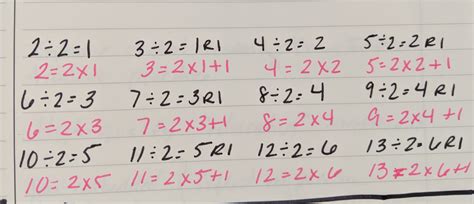 2÷2=1 3÷2=1R1 4÷2=2 5÷2=2R1
2=2x1 3=2x1+1 4=2x2 5=2x2+1
6÷2=3 7÷2=3R1 8÷2=4 9÷2=4R1
6=2x3 7=2x3+1 8=2x4 9=2x4+1
10÷2=5 11÷2=5R1 12÷2=6 13÷2=6R1
10=2x5 11=2x5+1 12=2x6 13=2x6+1